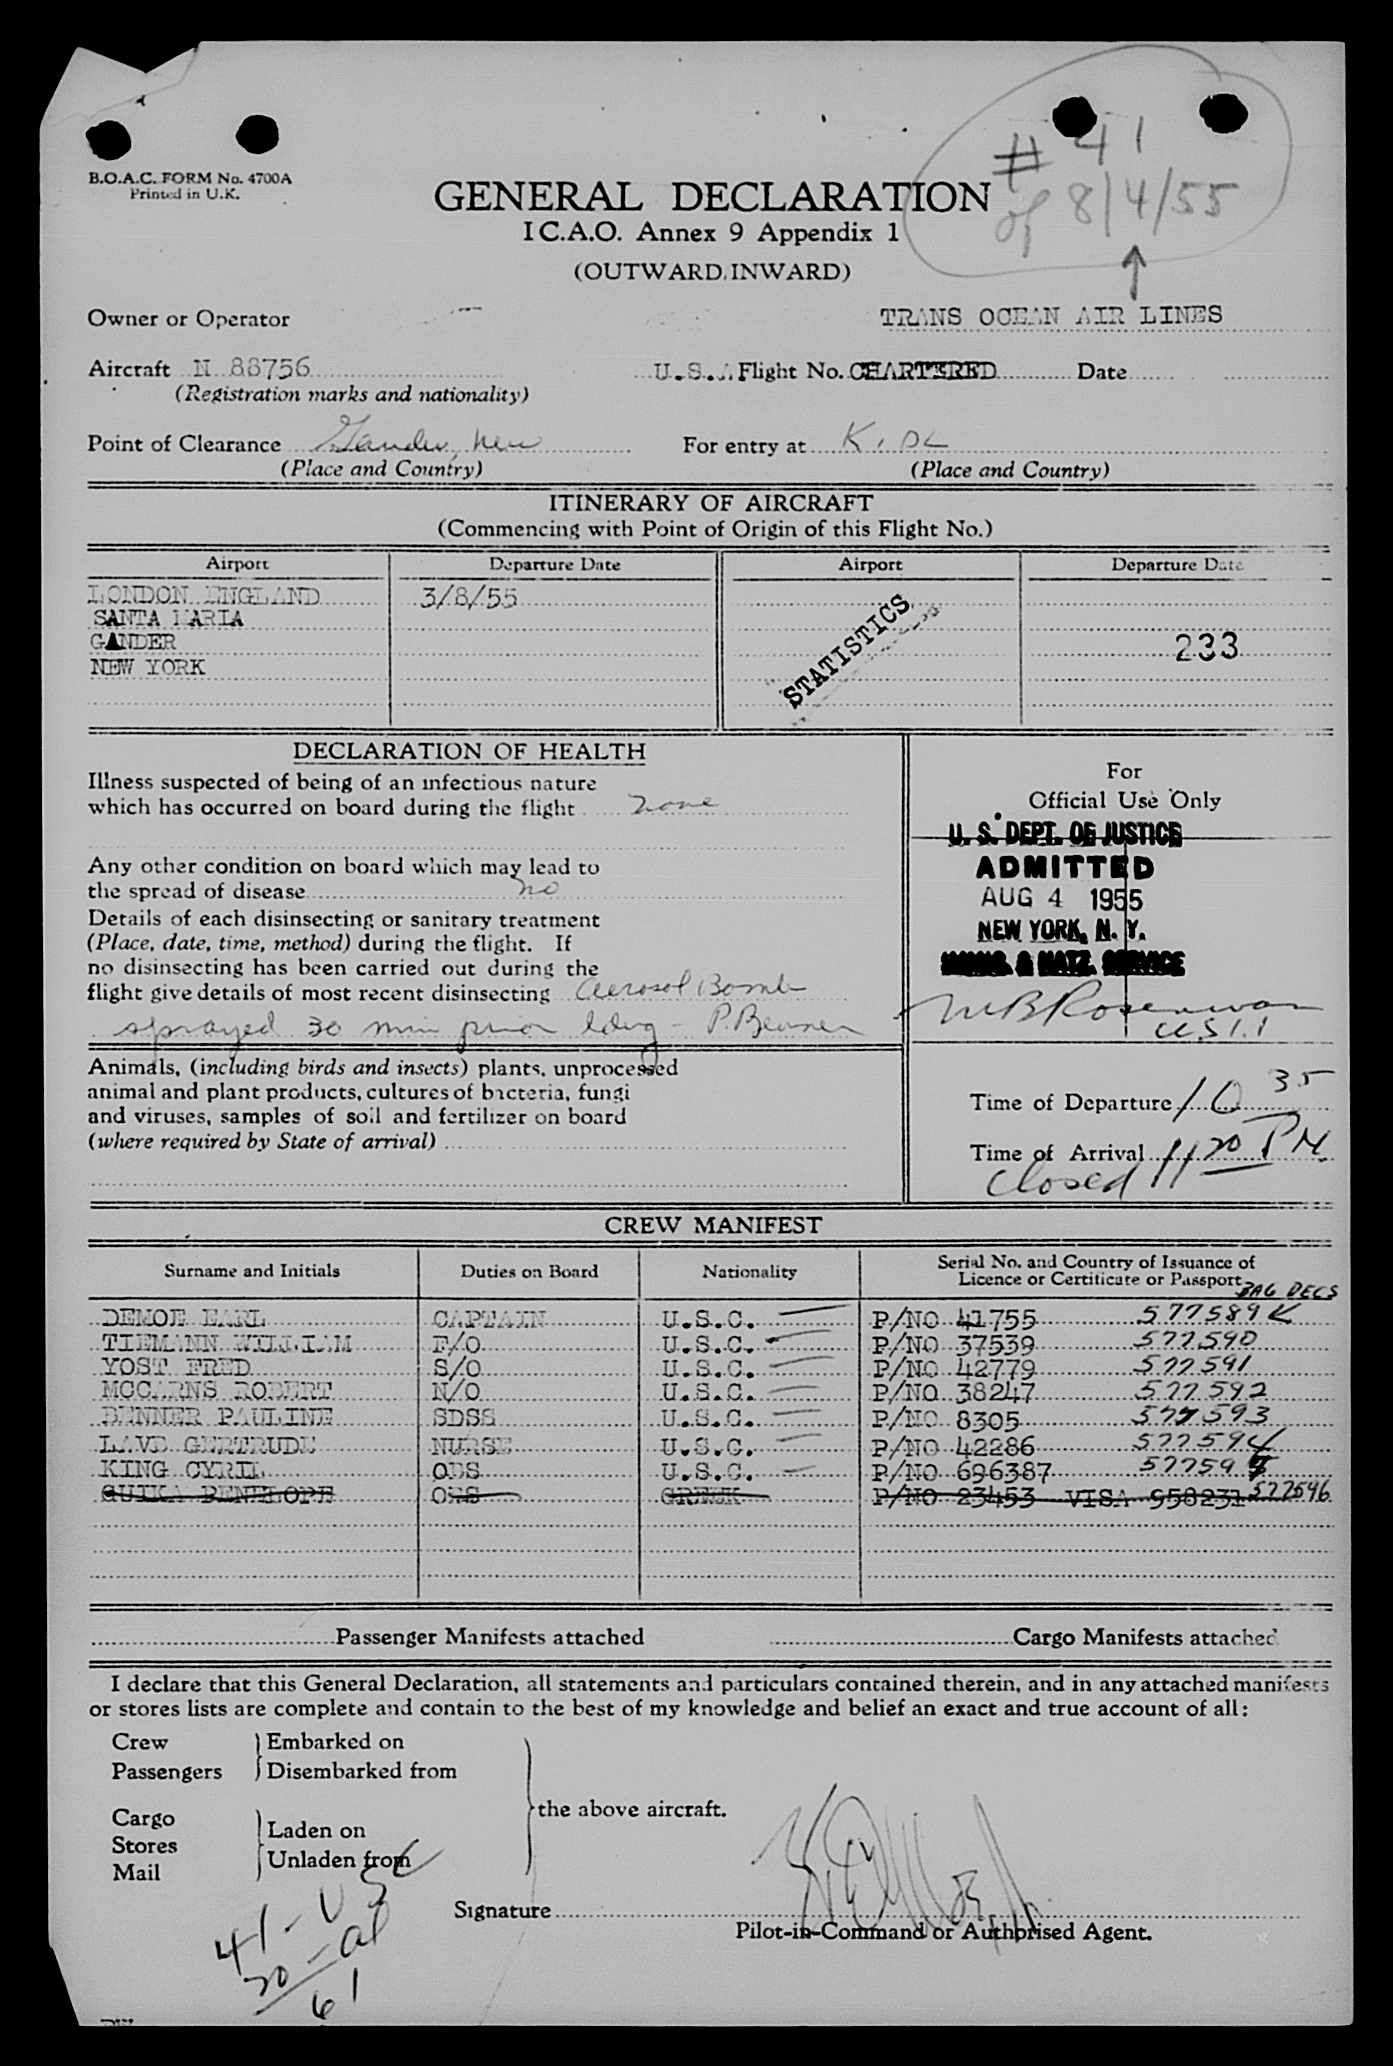 # 41
of 8/4/55
B.O.A.C. FORM No. 4700A
Printed in U.K.
GENERAL DECLARATION
I C.A.O. Annex 9 Appendix 1
(OUTWARD.INWARD)
Owner or Operator TRANS OCEAN AIR LINES
Aircraft N 88756 U.S.A Flight No. CHARTERED Date
(Registration marks and nationality)
Point of Clearance Gander, New For entry at
(Place and Country) (Place and Country)
ITINERARY OF AIRCRAFT
(Commencing with Point of Origin of this Flight No.)
Airport Departure Date Airport Departure Date
LONDON ENGLAND 3/8/55
SANTA MARIA
GANDER 233
NEW YORK
STATISTICS
DECLARATION OF HEALTH
Illness suspected of being of an infectious nature
which has occurred on board during the flight none
Any other condition on board which may lead to
the spread of disease no
Details of each disinsecting or sanitary treatment
(Place, date, time, method) during the flight. If
no disinsecting has been carried out during the
flight give details of most recent disinsecting Aerosol Bomb
sprayed 30 min prior ldng - P. Benner
Animals, (including birds and insects) plants, unprocessed
animal and plant products, cultures of bacteria, fungi
and viruses, samples of soil and fertilizer on board
(where required by State of arrival)
For
Official Use Only
U. S. DEPT. OF JUSTICE
ADMITTED
AUG 4 1955
NEW YORK, N. Y.
IMMIG. & NATZ. SERVICE
Time of Departure 10 35
Time of Arrival 11 20 PM.
Closed
CREW MANIFEST
Surname and Initials Duties on Board Nationality Serial No. and Country of Issuance of
Licence or Certificate or Passport BAG DECS
DEMOE EARL CAPTAIN U.S.C. P/NO 41755 577589
TIEMANN WILLIAM F/O U.S.C. P/NO 37539 577590
YOST FRED S/O U.S.C. P/NO 42779 577591
MCCARNS ROBERT N/O U.S.C. P/NO 38247 577592
BENNER PAULINE SDSS U.S.C. P/NO 8305 577593
LAVE GERTRUDE NURSE U.S.C. P/NO 42286 577594
KING CYRIL OBS U.S.C. P/NO 696387 577595
GUIKA PENELOPE OBS GREEK P/NO 23453 VISA 958231 577596
Passenger Manifests attached Cargo Manifests attached
I declare that this General Declaration, all statements and particulars contained therein, and in any attached manifests
or stores lists are complete and contain to the best of my knowledge and belief an exact and true account of all:
Crew Embarked on
Passengers Disembarked from
the above aircraft.
Cargo
Stores Laden on
Mail Unladen from
41 - USC
20 - al
61
Signature
Pilot-in-Command or Authorised Agent.